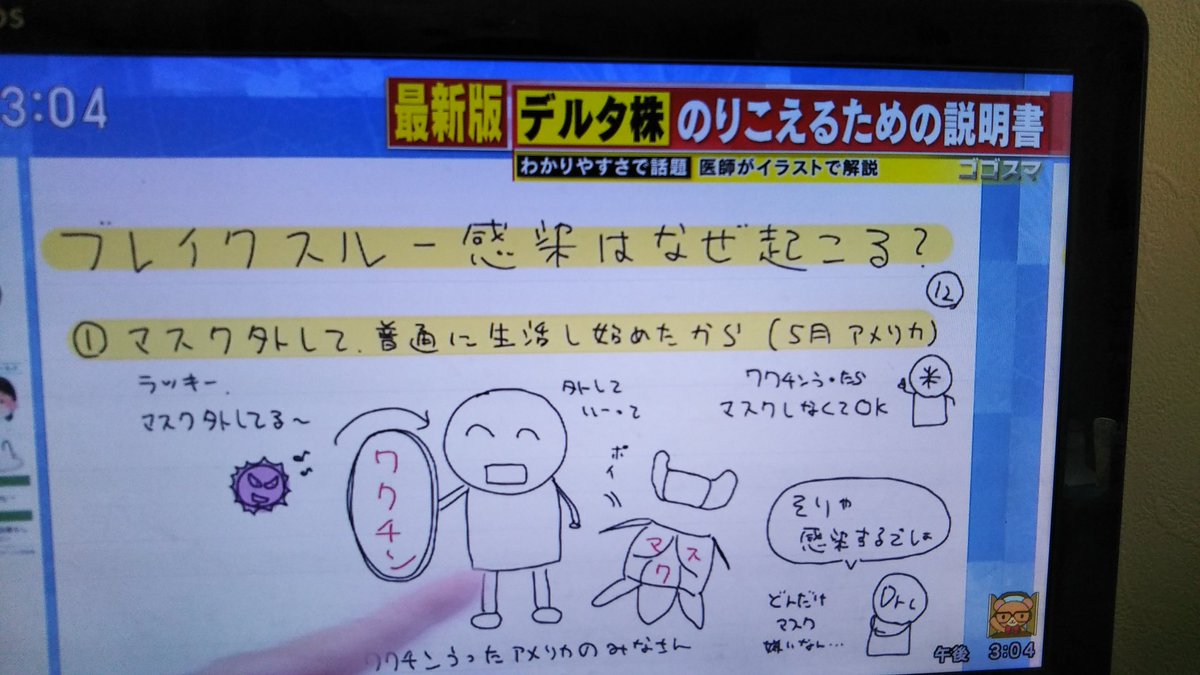 3:04
最新版 デルタ株 のりこえるための説明書
わかりやすさで話題 医師がイラストで解説 ゴゴスマ
ブレイクスルー感染はなぜ起こる?
⑫
① マスク外して、普通に生活し始めたから (5月 アメリカ)
ラッキー、
マスク外してる〜
ワクチン
外して
いーって
ポイ
マスク
ワクチンうったら
マスクしなくてOK
米
そりゃ
感染するでしょ
どんだけ
マスク
嫌いなん…
Dr.
ワクチンうったアメリカのみなさん
午後 3:04